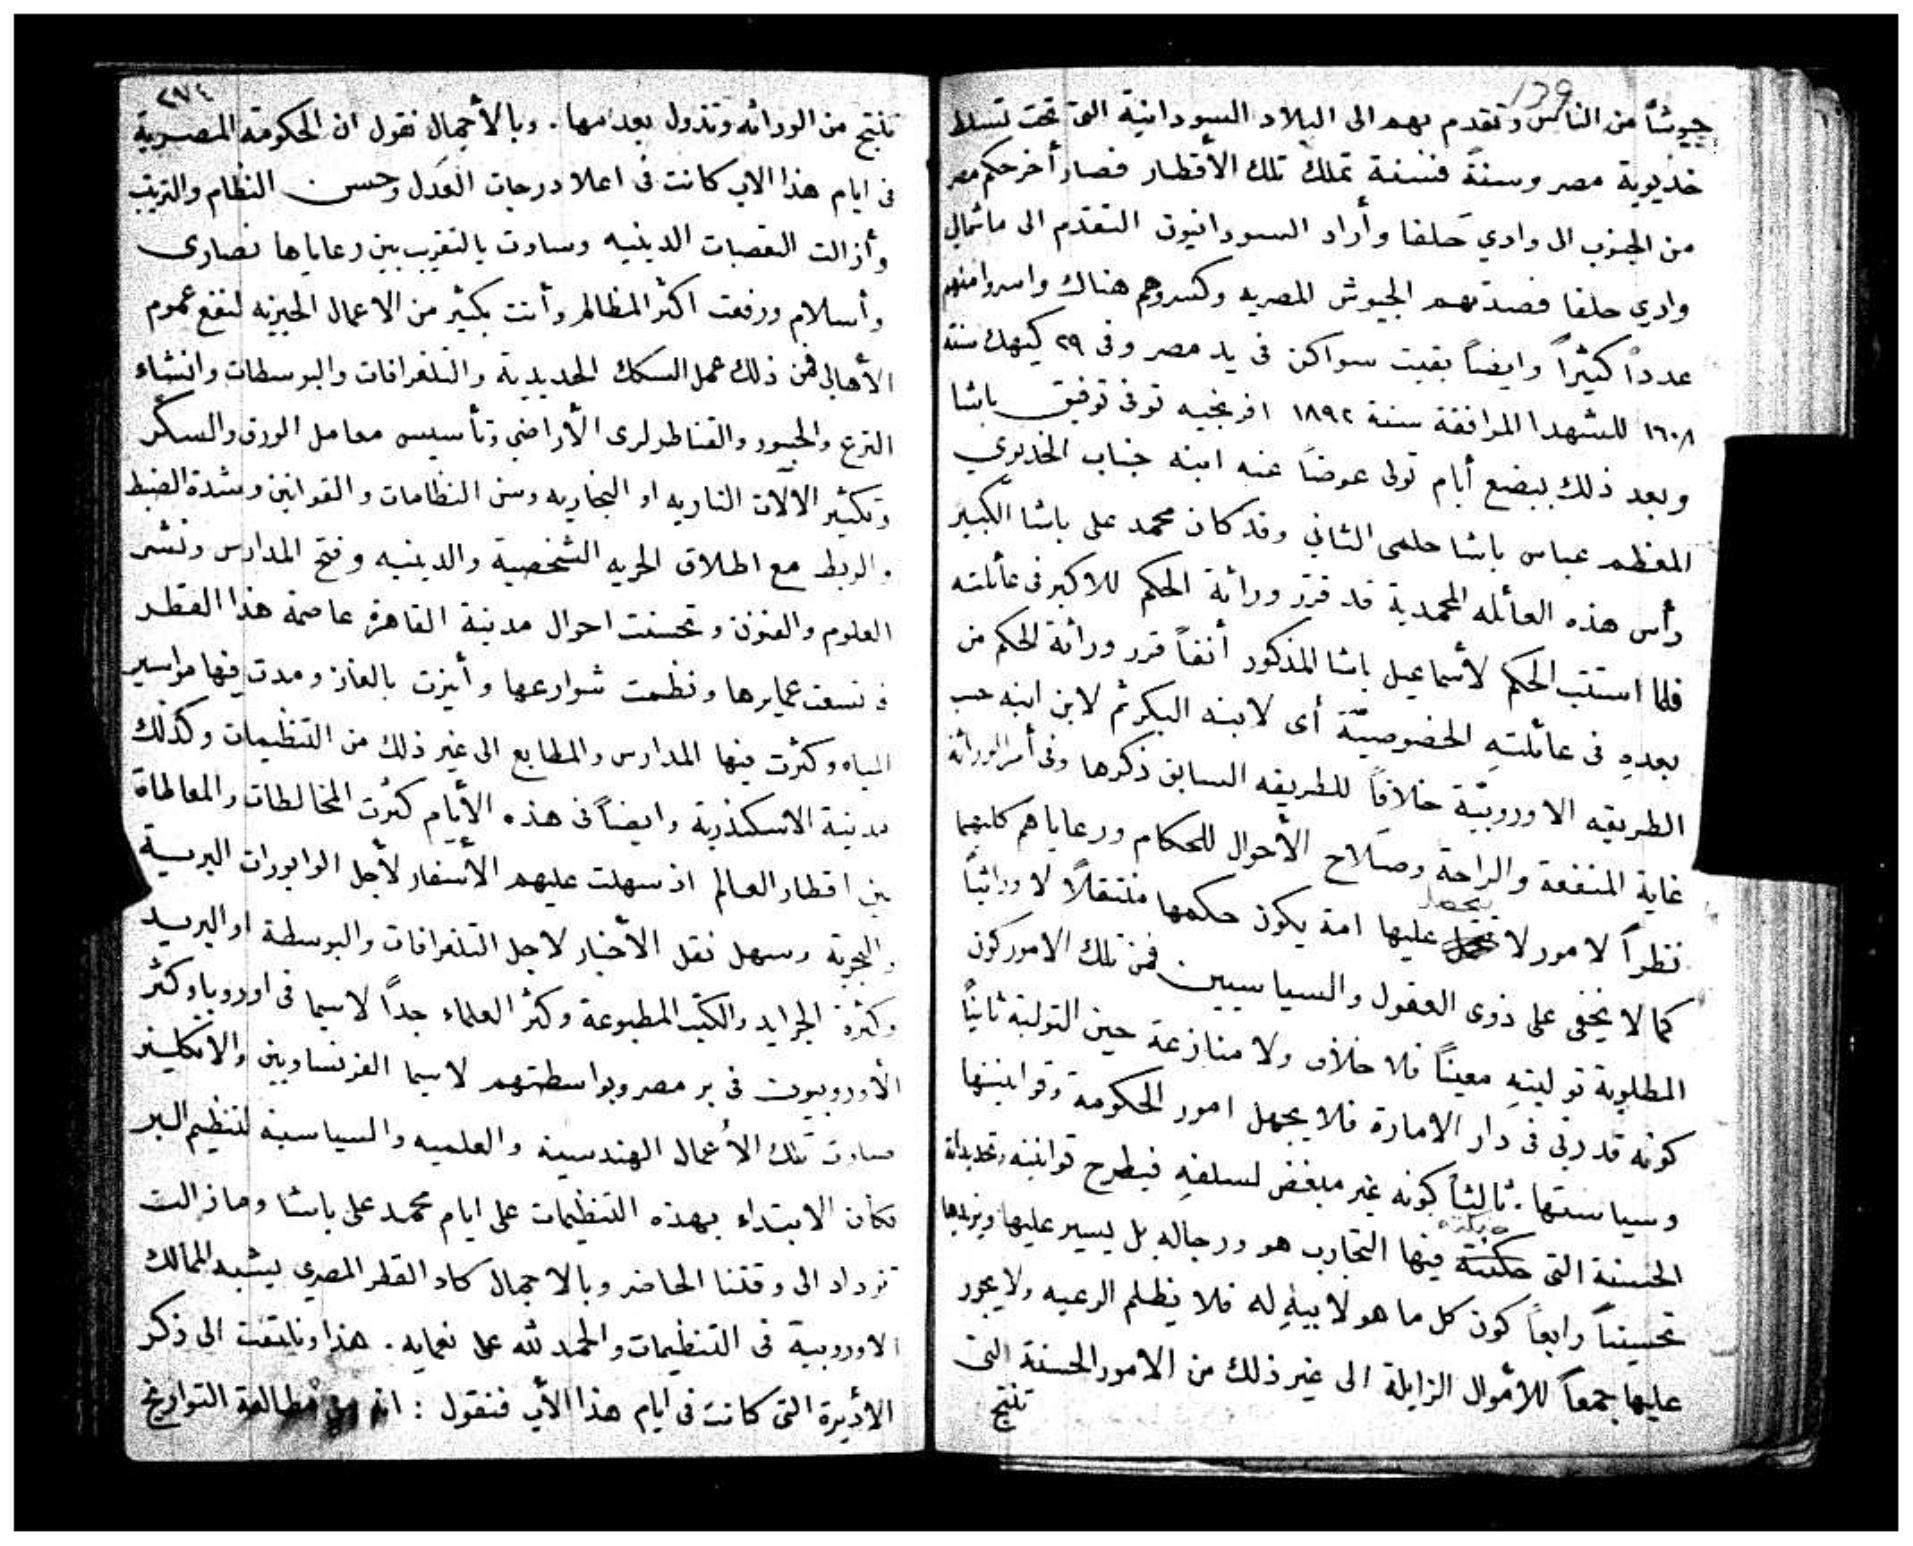 139
جيوشاً من الناس وتقدم بهم الى البلاد السودانية التى تحت تسلط
خديوية مصر وسنةً فسنة تملك تلك الأقطار فصار أخر حكم مصر
من الجنوب الى وادي حَلفا وأراد السودانيون التقدم الى ما شمالي
وادي حلفا فصدتهم الجيوش المصريه وكسروهم هناك واسروا منهم
عدداً كثيراً وايضاً بقيت سواكن فى يد مصر وفى ٢٩ كيهك سنة
١٦٠٨ للشهدا المرافقة سنة ١٨٩٢ افرنجيه توفى توفيق باشا
وبعد ذلك ببضع أيام تولى عوضاً عنه ابنه جناب الخديوي
المعظم عباس باشا حلمى الثاني وقد كان محمد على باشا الكبير
رأس هذه العائله المحمدية قد قرر وراثة الحكم للاكبر فى عائلته
فلما استتب الحكم لأسماعيل باشا المذكور أنفاً قرر وراثة الحكم من
بعدهِ فى عائلتهِ الخصوصيّة أى لابنه البكر ثم لابن ابنه حسب
الطريقه الاوروبيّة خلافاً للطريقه السابق ذكرها وفى أمر الوراثة
غاية المنفعة والراحة وصَلاح الأحوال للحكام ورعاياهم كليهما
نظراً لامور لا يحصل عليها امة يكون حكمها منتقلاً لا وراثياً
كما لا يخفى على ذوى العقول والسياسيين فمن تلك الامور كون
المطلوبة توليتهِ معيناً فلا خلاف ولا منازعة حين التولية ثانياً
كونه قد ربى فى دار الامارة فلا يجهل امور الحكومة وقوانينها
وسياستها. ثالثاً كونه غير مبغض لسلفهِ فيطرح قوانينه وتحديداته
الحسنة التى حنكته فيها التجارب هو ورجاله بل يسير عليها ويزيدها
تحسيناً رابعاً كون كل ما هو لابيهِ له فلا يظلم الرعيه ولا يجور
عليها جمعاً للأموال الزايلة الى غير ذلك من الامور الحسنة التى
تنتج
٢٧٤
تنتج من الوراثه وتزول بعدمها. وبالأجمال نقول ان الحكومة المصرية
فى ايام هذا الاب كانت فى اعلا درجات العَدل وحسن النظام والترتيب
وأزالت التعصبات الدينيه وساوت بالتقريب بين رعاياها نصارى
وأسلام ورفعت اكثر المظالم وأتت بكثير من الاعمال الخيريه لنفع عموم
الأهالى فمن ذلك عمل السكك الحديدية والتلغرافات والبوسطات وانشاء
الترع والجسور والقناطر لرى الأراضى وتأسيس معامل الورق والسكر
وتكثير الآلات الناريه او البخاريه وسن النظامات والقوانين وشدة الضبط
والربط مع اطلاق الحريه الشخصية والدينيه وفتح المدارس ونشر
العلوم والفنون وتحسنت احوال مدينة القاهرة عاصمة هذا القطر
فاتسعت عمايرها ونظمت شوارعها وأنيرت بالغاز ومدت فيها مواسير
المياه وكثرت فيها المدارس والمطابع الى غير ذلك من التنظيمات وكذلك
مدينة الاسكندرية وايضاً فى هذه الأيام كثُرت المخالطات والمعاطاة
بين اقطار العالم اذ سهلت عليهم الأسفار لأجل الوابورات البرية
والبحرية وسهل نقل الأخبار لاجل التلغرافات والبوسطة او البريد
وكثرة الجرايد والكتب المطبوعة وكثر العلماء جداً لاسيما فى اوروبا وكثر
الأوروبيون فى بر مصر وبواسطتهم لاسيما الفرنساويين والانكليز
صارت تلك الأعمال الهندسية والعلميه والسياسية لتنظيم البر
فكان الابتداء بهذه التنظيمات على ايام محمد على باشا وما زالت
تزداد الى وقتنا الحاضر وبالاجمال كاد القطر المصري يشبه الممالك
الاوروبية فى التنظيمات والحمد لله على نعمايه. هذا ونلتفت الى ذكر
الأديرة التى كانت فى ايام هذا الأب فنقول : انه من مطالعة التواريخ